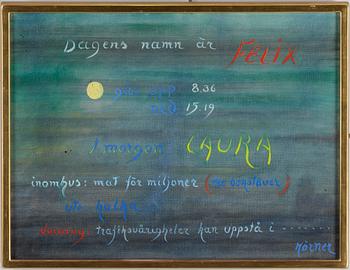 Dagens namn är FELIX
går upp 8.36
ned 15.19
I morgon LAURA
inomhus: mat för miljoner (
ute halka
Varning: trafiksvårigheter kan uppstå i ........
Körner